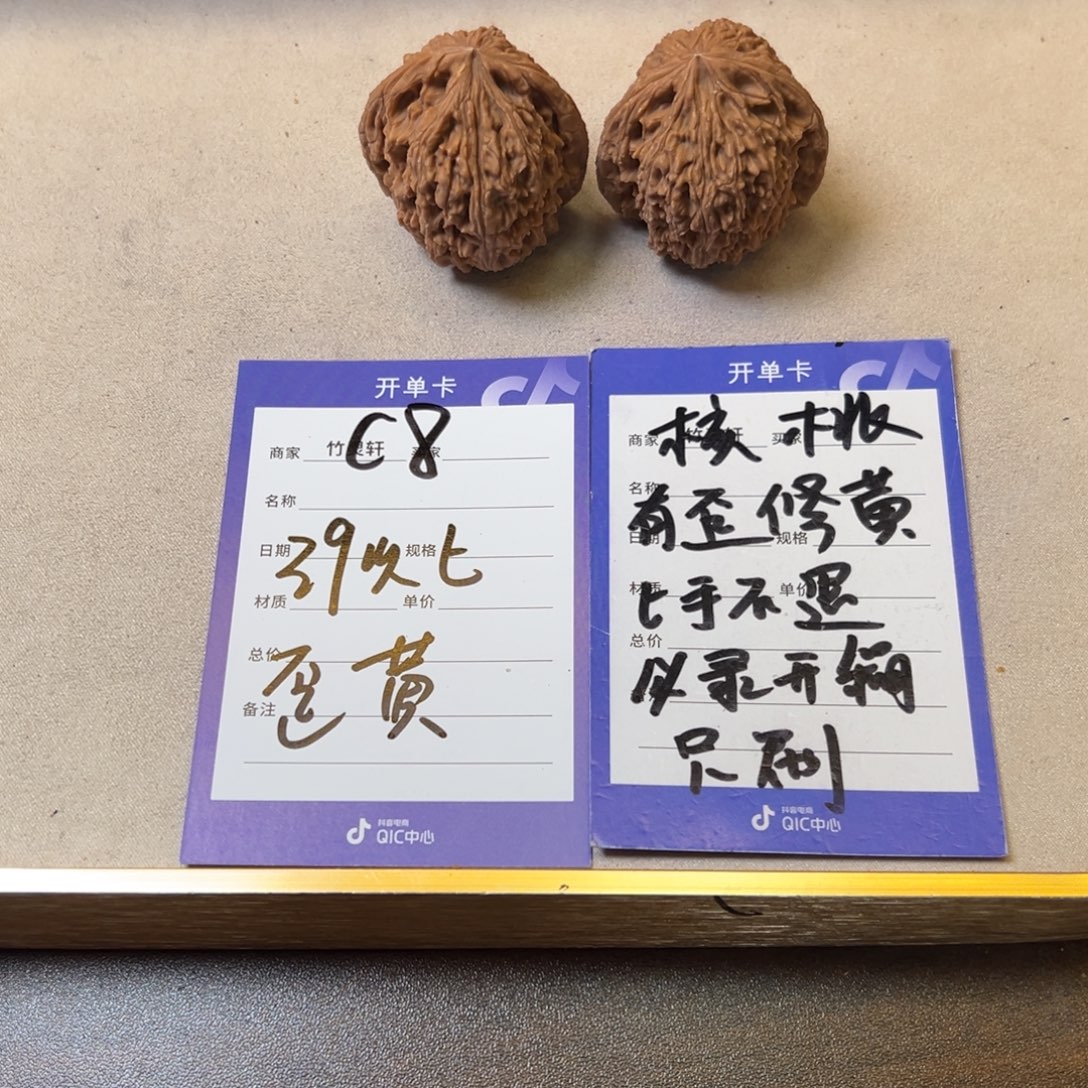 开单卡
C8
商家 竹灵轩
名称
日期 规格
39以上
材质 单价
总价
歪黄
备注
抖音电商
QIC中心
开单卡
商家 买家
核桃
名称
有歪修黄
日期 规格
材质 单价
上手不退
总价
必录开箱
只刷
抖音电商
QIC中心